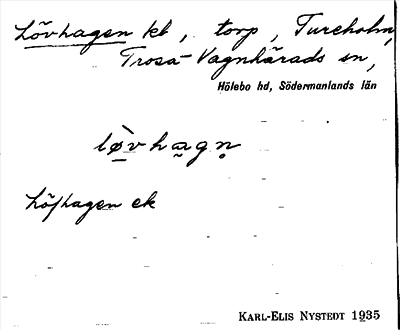 Lövhagen kl, torp, Tureholm,
Trosa-Vagnhärads sn,
Hölebo hd, Södermanlands län
lø̠vha̰gn̥
Löfhagen ek
KARL-ELIS NYSTEDT 1935